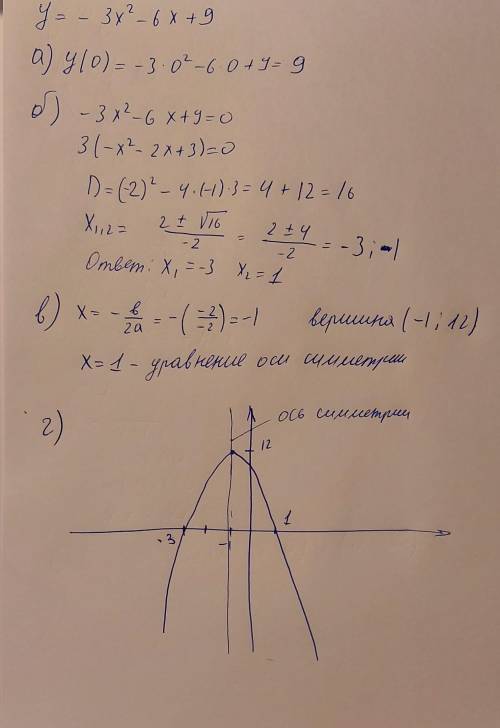 y = - 3x² - 6x + 9
а) y(0) = -3·0² - 6·0 + 9 = 9
б) -3x² - 6x + 9 = 0
3(-x² - 2x + 3) = 0
D = (-2)² - 4·(-1)·3 = 4 + 12 = 16
x₁,₂ = (2 ± √16)/-2 = (2 ± 4)/-2 = -3; 1
Ответ: x₁ = -3 x₂ = 1
в) x = - в/2a = -(-2/-2) = -1 вершина (-1; 12)
x = 1 - уравнение оси симметрии
г) ось симметрии
12
-3 -1 1